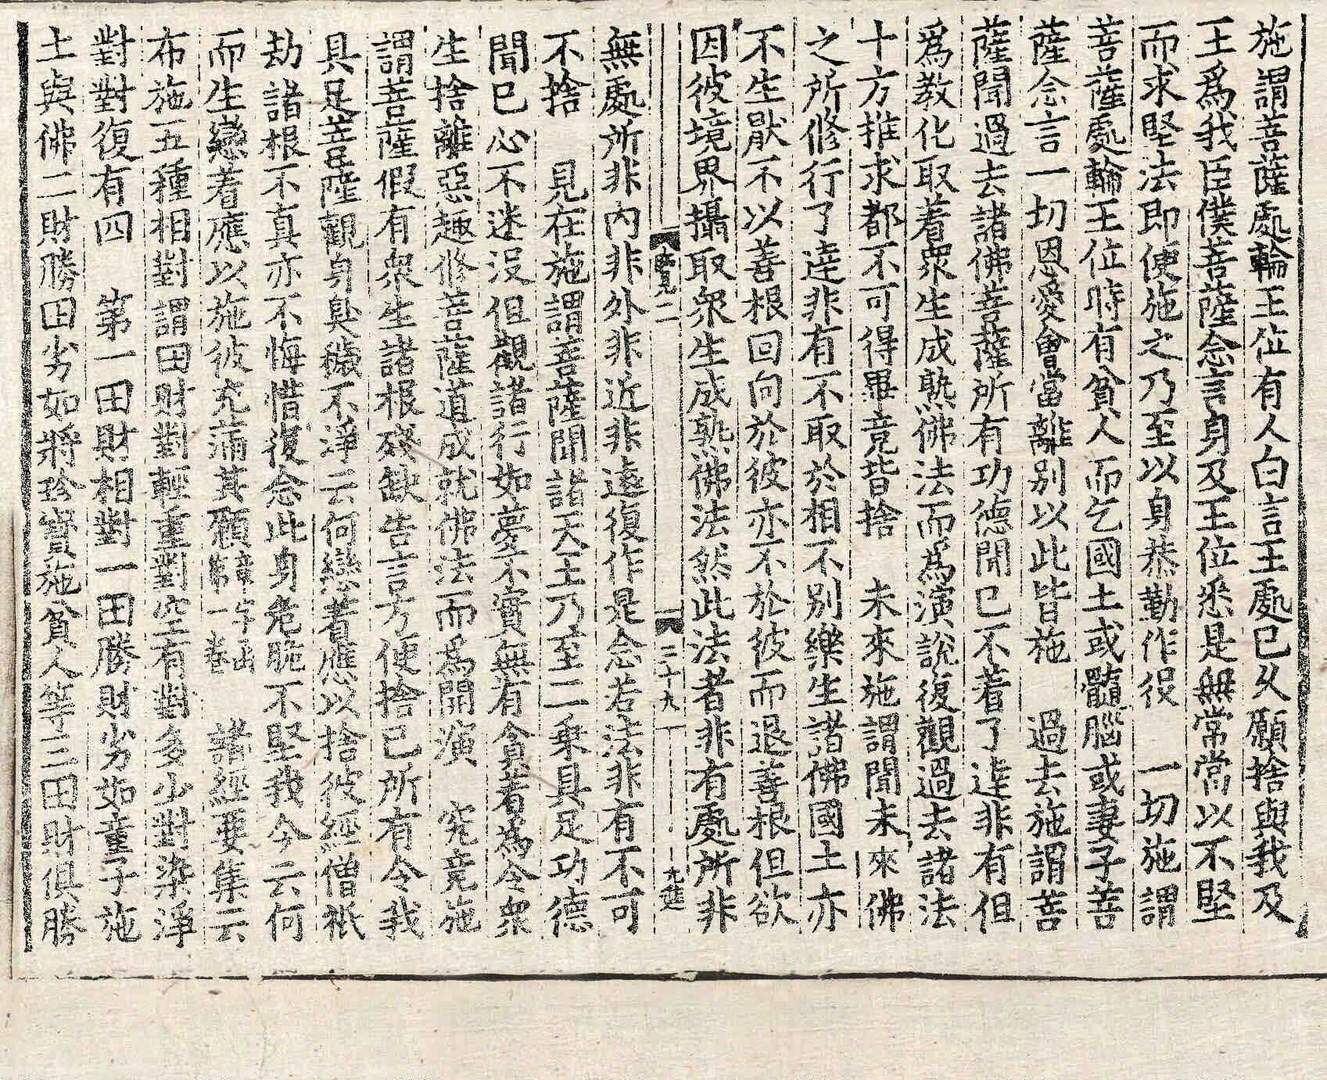 施謂菩薩處輪王位有人白言王處已久願捨與我及
王爲我臣僕菩薩念言身及王位悉是無常當以不堅
而求堅法即便施之乃至以身恭勤作役　一切施謂
菩薩處輪王位時有貧人而乞國土或髓腦或妻子菩
薩念言一切恩愛會當離别以此皆施　過去施謂菩
薩聞過去諸佛菩薩所有功德聞已不着了達非有但
爲教化取着眾生成熟佛法而爲演說復觀過去諸法
十方推求都不可得畢竟皆捨　未來施謂聞未來佛
之所修行了達非有不取於相不别樂生諸佛國土亦
不生厭不以善根回向於彼亦不於彼而退善根但欲
因彼境界攝取眾生成熟佛法然此法者非有處所非
二
三十九
無處所非內非外非近非遠復作是念若法非有不可
不捨　見在施謂菩薩聞諸天王乃至二乗具足功德
聞已心不迷没但觀諸行如夢不實無有貪着爲令衆
生捨離惡趣修菩薩道成就佛法而爲開演　究竟施
謂菩薩假有衆生諸根殘缺告言方便捨已所有令我
具足菩薩觀身臭穢不淨云何戀著應以捨彼經僧祇
劫諸根不真亦不悔惜復念此身危脆不堅我今云何
而生戀着應以施彼充滿其願章字出第一卷　諸經要集云
布施五種相對謂田財對輕重對空有對多少對染淨
對對復有四　第一田財相對一田勝財劣如童子施
土與佛二財勝田劣如將珍寶施貧人等三田財俱勝